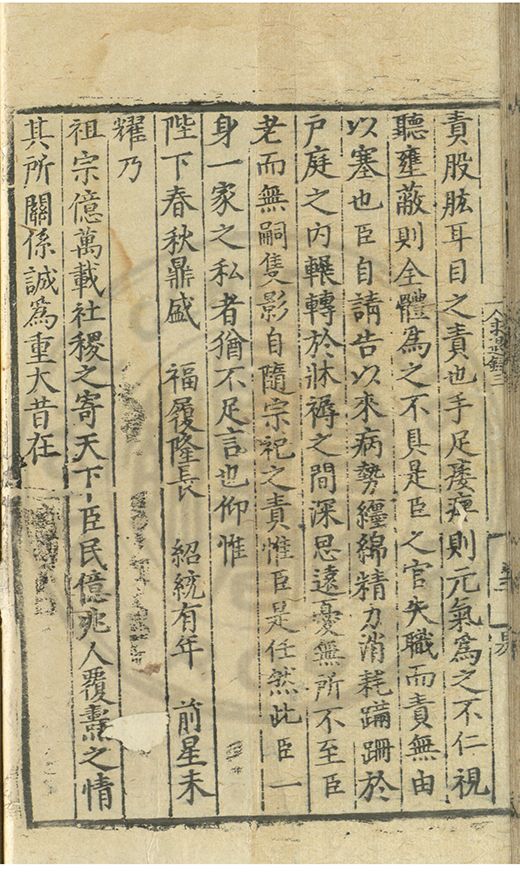 責股肱耳目之責也手足痿痺則元氣爲之不仁視
聽壅蔽則全體爲之不具是臣之官失職而責無由
以塞也臣自請告以來病勢纏綿精力消耗蹣跚於
戶庭之內輾轉於牀褥之間深思遠憂無所不至臣
老而無嗣隻影自隨宗祀之責惟臣是任然此臣一
身一家之私者猶不足言也仰惟
陛下春秋鼎盛 福履隆長 紹統有年 前星未
耀乃
祖宗億萬載社稷之寄天下臣民億兆人覆燾之情
其所關係誠爲重大昔在